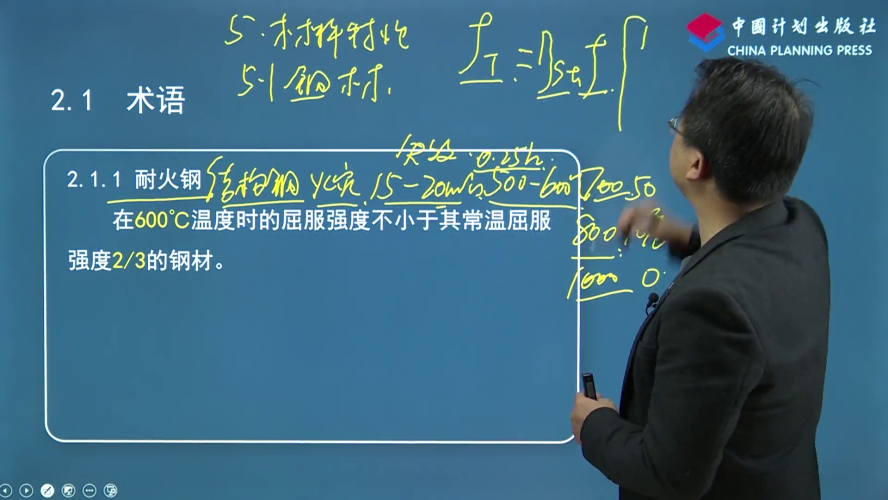 中国计划出版社
CHINA PLANNING PRESS
5.材料特性
5.1 钢材.
2.1 术语
0.25h
2.1.1 耐火钢 结构钢 火灾 15-20min 500-600℃ 700.50
在600℃温度时的屈服强度不小于其常温屈服
800
强度2/3的钢材。
1000 0